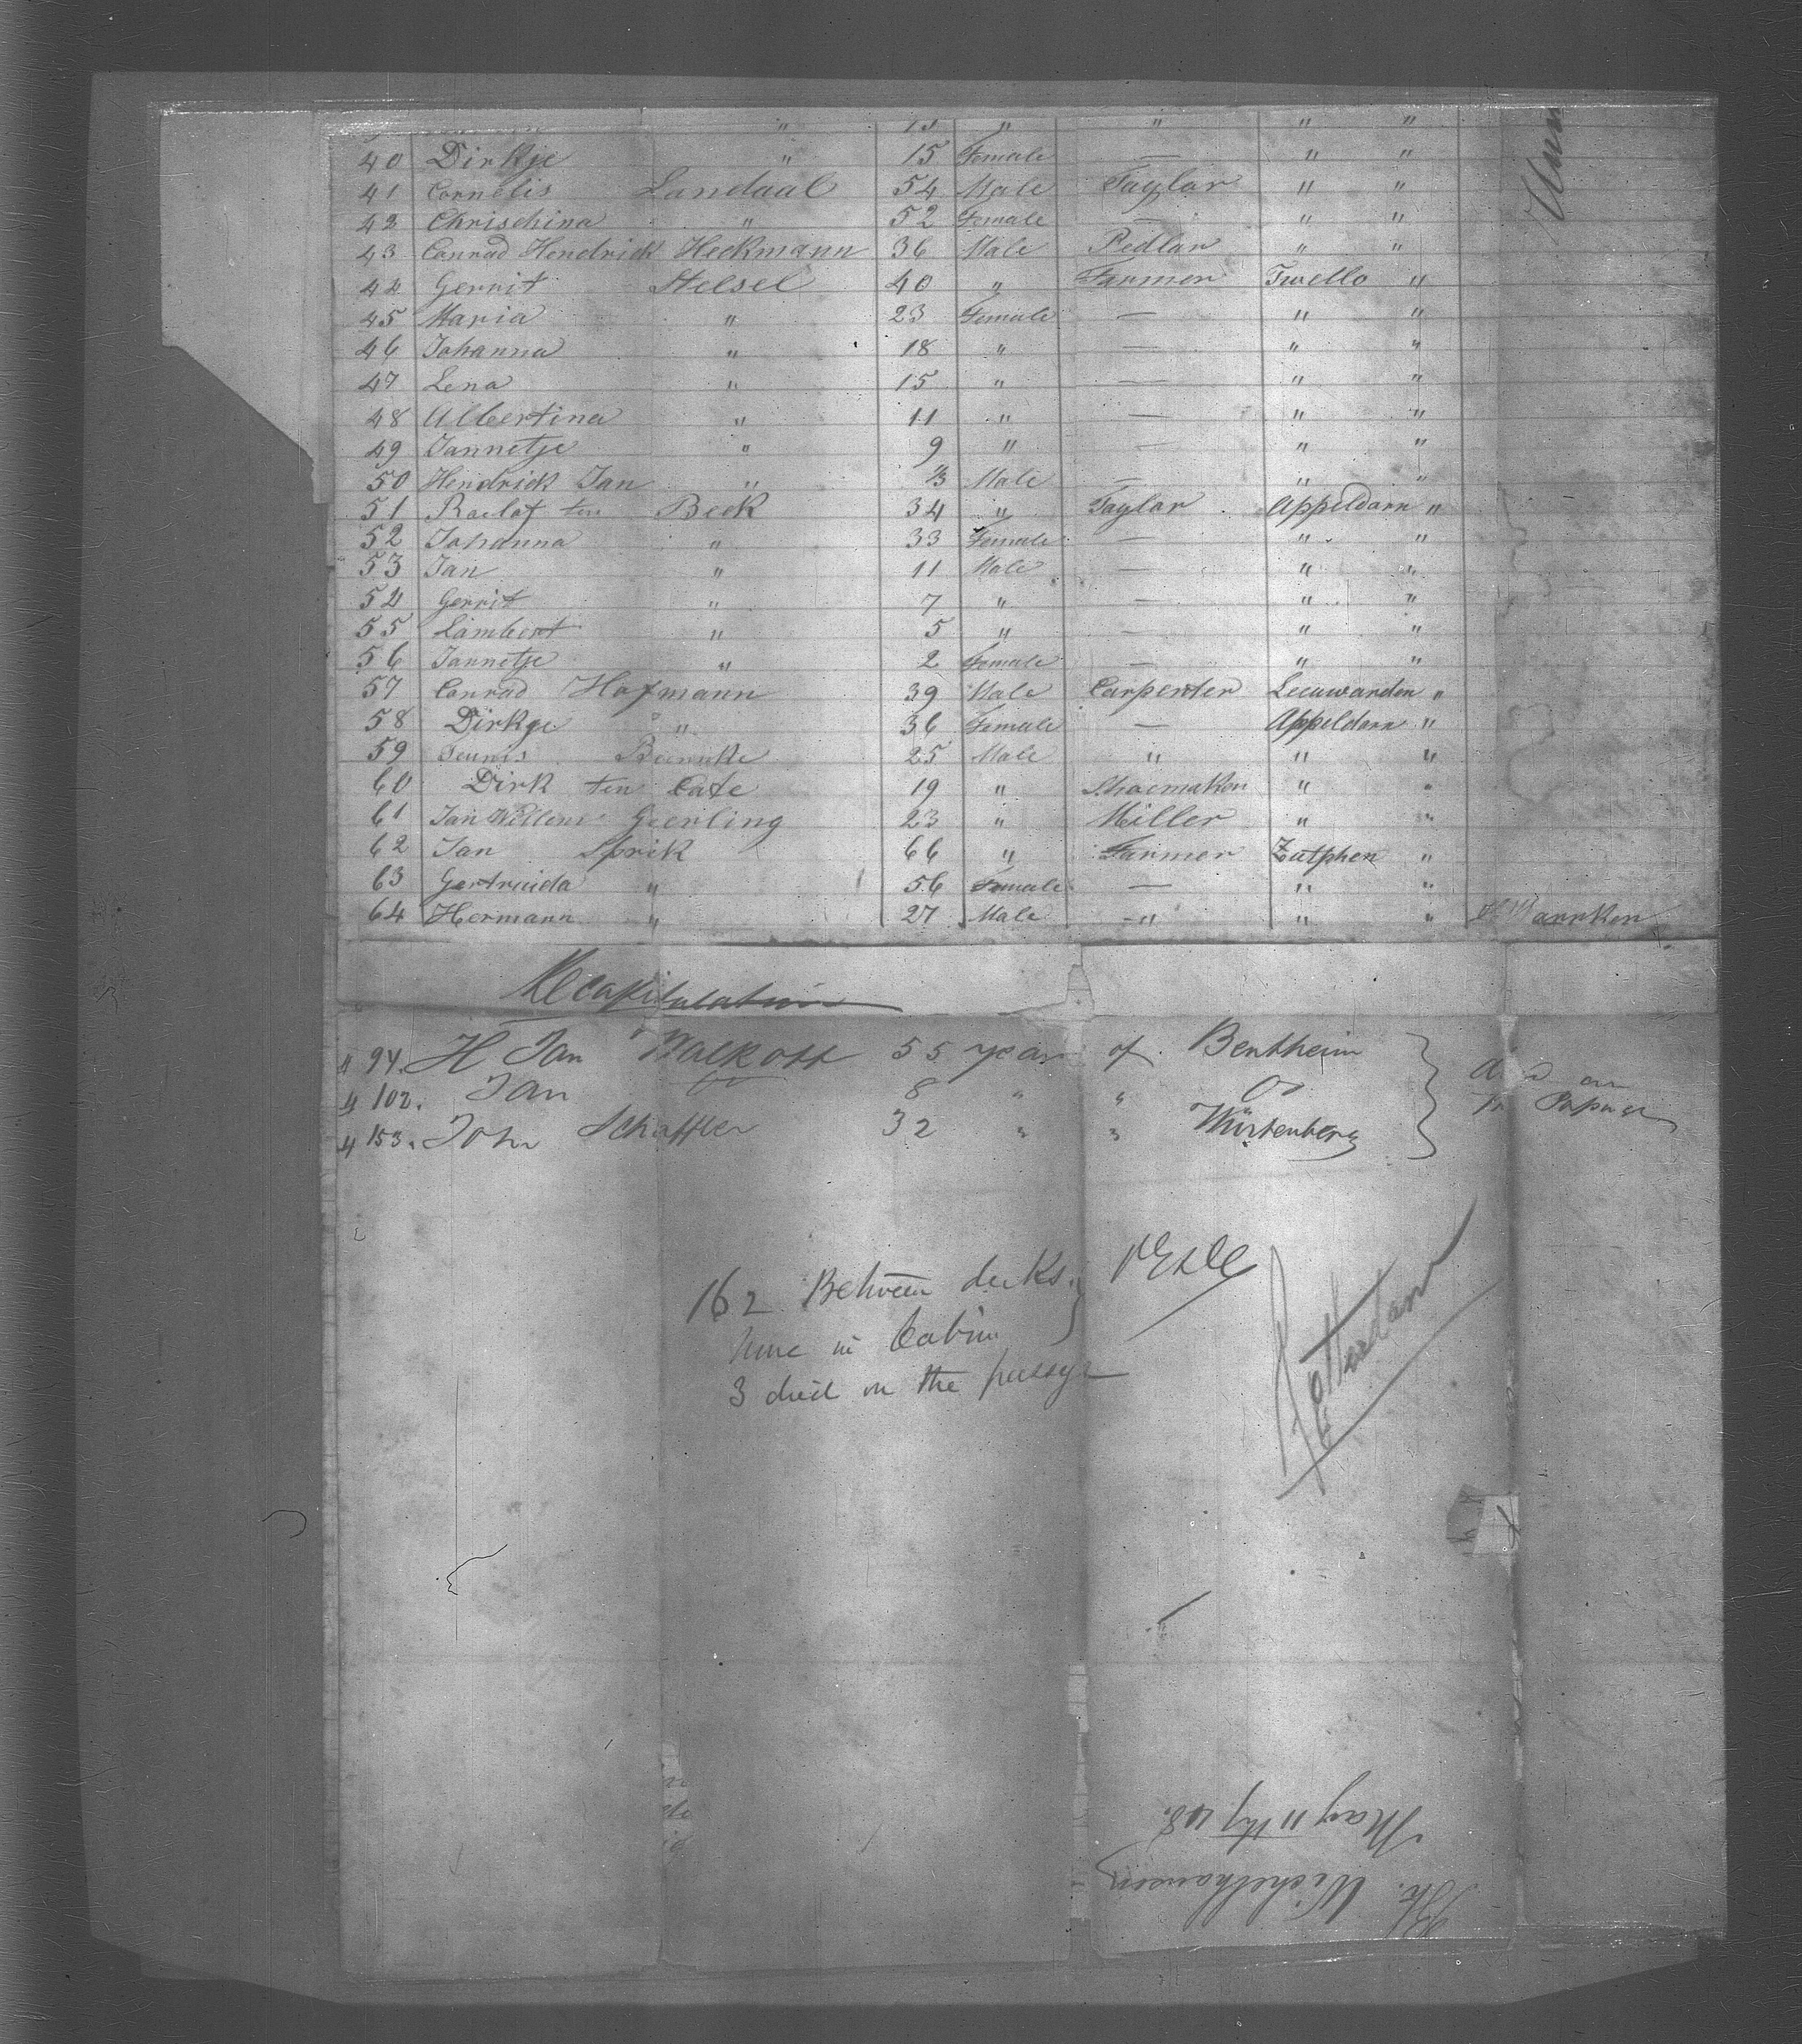 " 15 " " " "
40 Dirkje " 15 Female — " "
41 Cornelis Landaal 54 Male Taylor " "
42 Chrischina " 52 Female — " "
43 Conrad Hendrick Heckmann 36 Male Pedlar " "
44 Gerrit Stelsel 40 " Farmer Twello "
45 Maria " 23 Female — " "
46 Johanna " 18 " — " "
47 Lena " 15 " — " "
48 Albertina " 11 " — " "
49 Jannetje " 9 " — " "
50 Hendrick Jan " Male — " "
51 Roelof ten Beek 34 " Taylor Appeldorn "
52 Johanna " 33 Female — " "
53 Jan " 11 Male — " "
54 Gerrit " 7 " — " "
55 Lambert " 5 " — " "
56 Jannetje " 2 Female — " "
57 Conrad Hofmann 39 Male Carpenter Leeuwarden "
58 Dirkje " 36 Female — Appeldorn "
59 Teunis 25 Male " " "
60 Dirk ten Cate 19 " Shoemaker " "
61 Jan Willem Geerling 23 " Miller " "
62 Jan Sprik 66 " Farmer Zutphen "
63 Gertruida " 56 Female — " "
64 Hermann " 27 Male " " "
Recapitulation
# 94. H Jan Walkott 55 year of Bentheim
# 102. Jan 8 " "
# 153. John Schaffler 32 " " Würtenberg
162 Between decks
None in Cabin
3 died on the passage
Rotterdam
May 11th / 48.
Wichelhausen